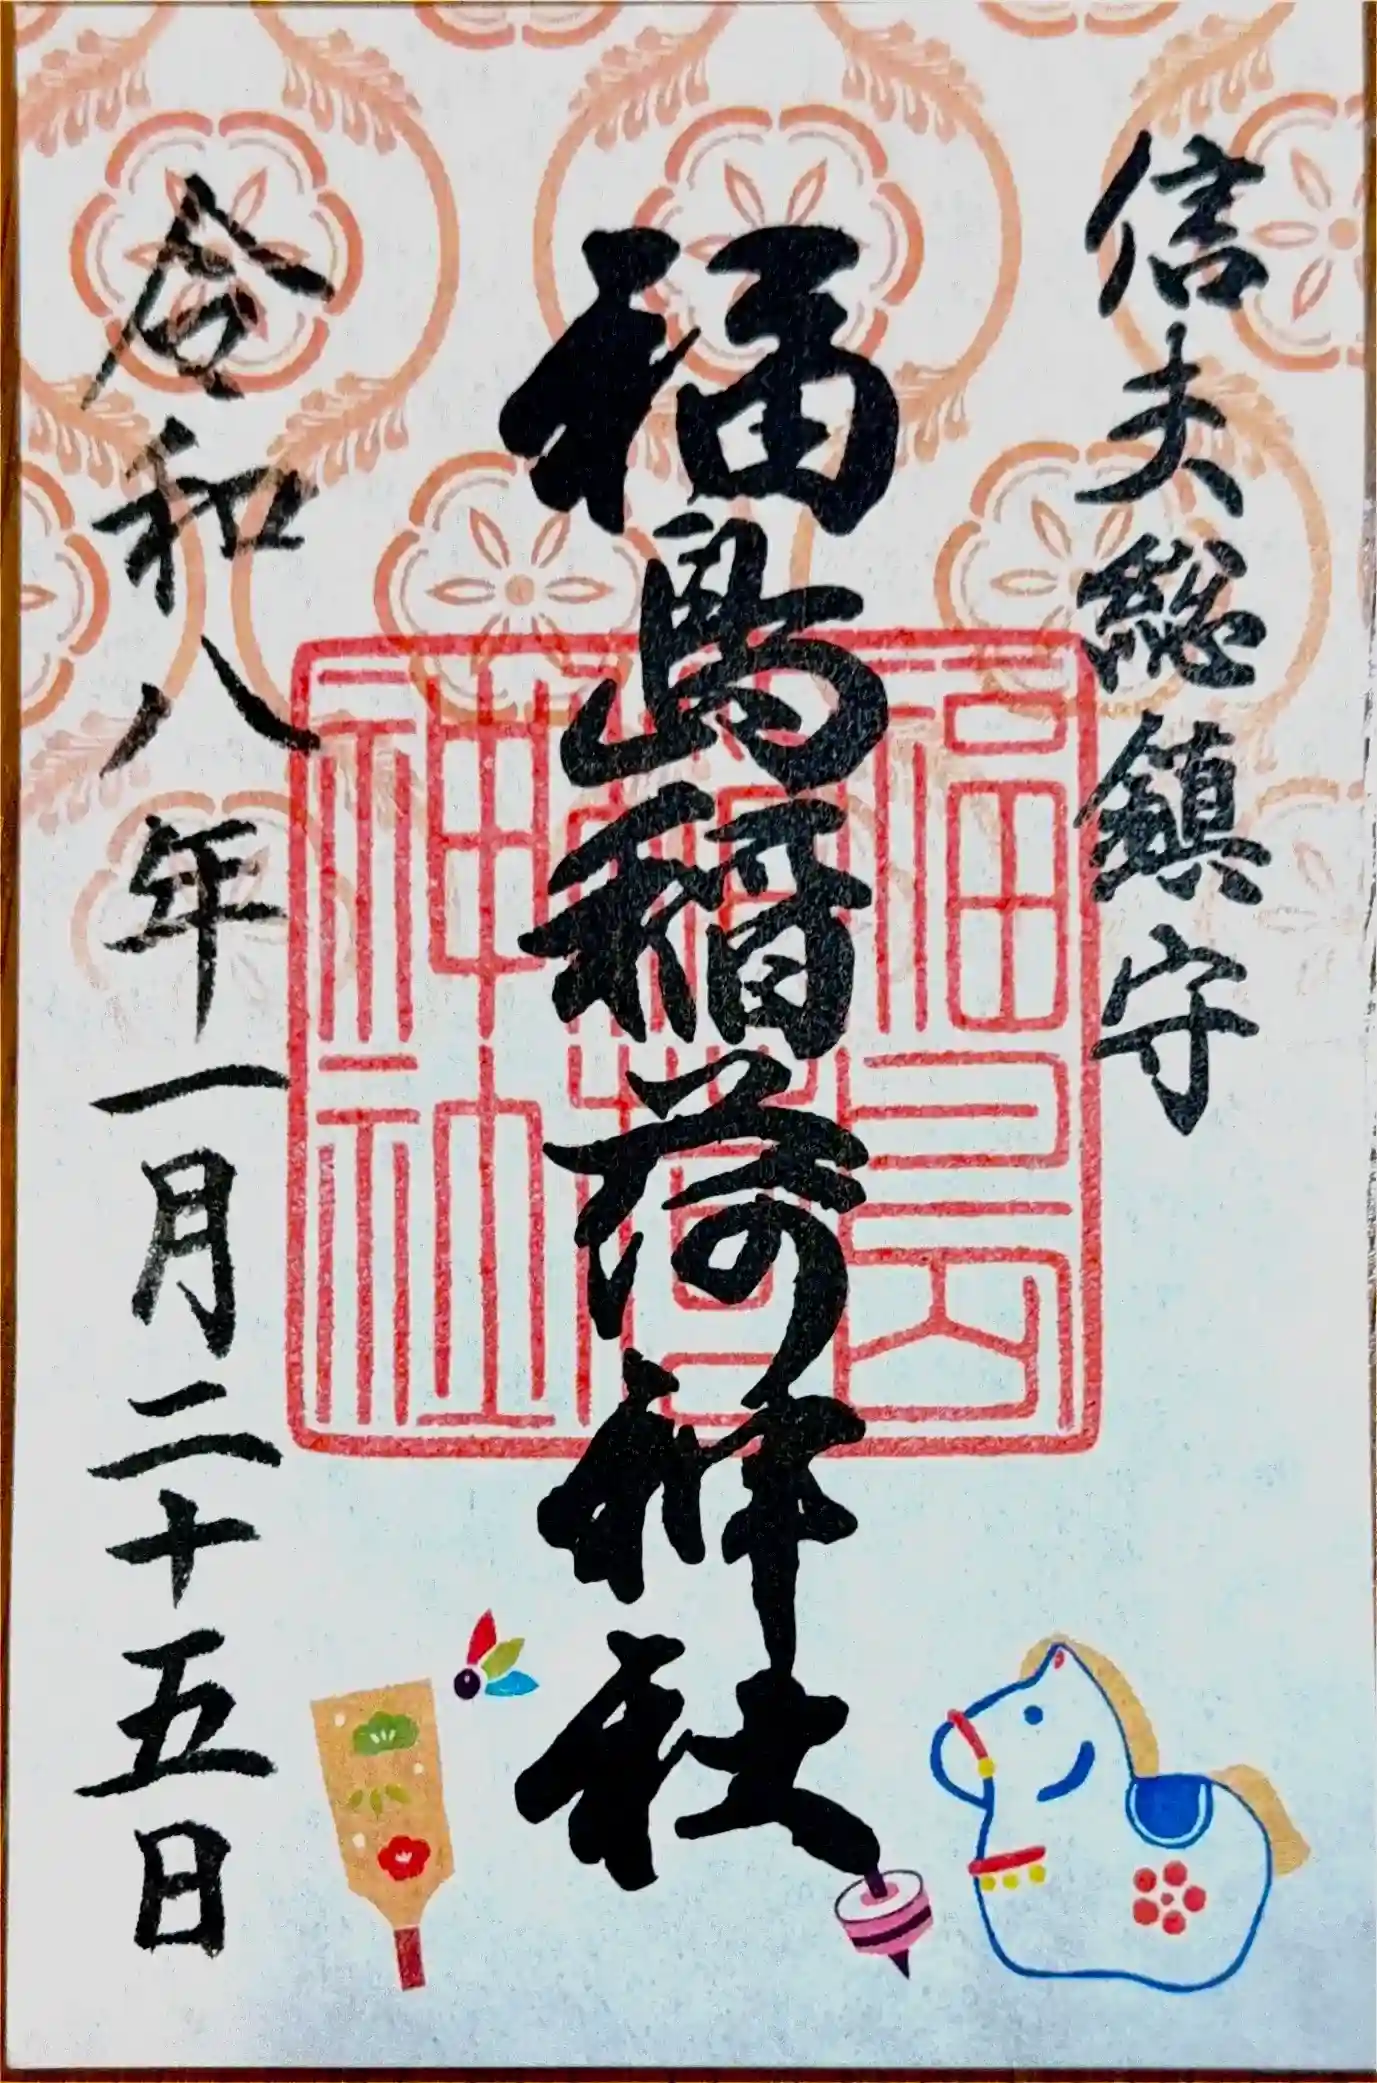 信夫総鎮守
福島稲荷神社
福島稲荷神社
令和八年一月二十五日